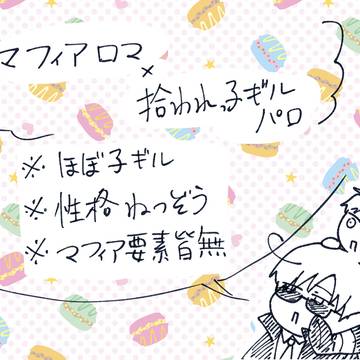 マフィアロマ
×
拾われっ子ギル
パロ
※ほぼ子ギル
※性格ねつぞう
※マフィア要素皆無